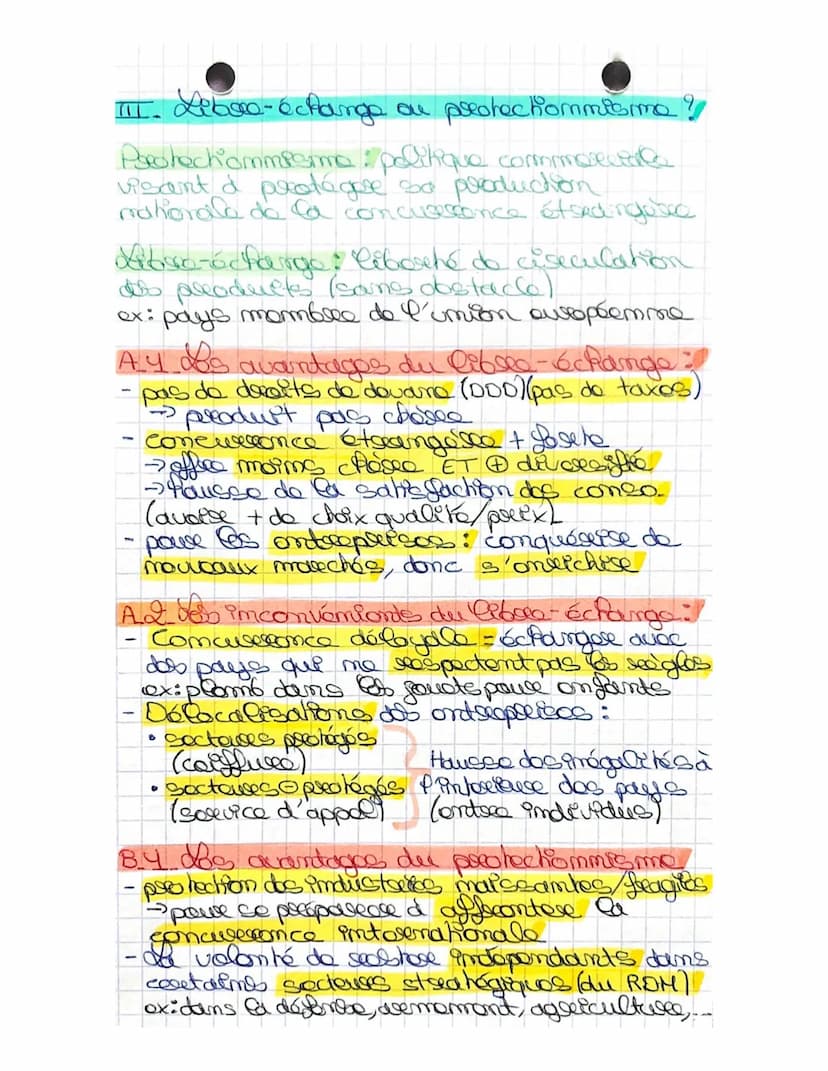 III. Libre-échange ou protectionnisme ?
Protectionnisme : politique commerciale
visant à protéger sa production
nationale de la concurrence étrangère
Libre-échange : liberté de circulation
des produits (sans obstacle)
ex : pays membre de l'union européenne
A.1 Les avantages du libre-échange :
- pas de droits de douane (DDD)(pas de taxes)
→ produit pas chère
- concurrence étrangère + forte
→ offre moins chère ET ⊕ diversifié
→ Hausse de la satisfaction des conso.
(avoir + de choix qualité/prix)
- pour les entreprises : conquérir de
nouveaux marchés, donc s'enrichir
A.2 Les inconvénients du libre-échange :
- Concurrence déloyale = échanger avec
des pays que ne respectent pas les règles
ex : plomb dans les jouets pour enfants
- Délocalisations des entreprises :
• secteurs protégés
(coiffure)
• secteurs ⊖ protégés
(service d'appel)
Hausse des inégalités à
l'intérieur des pays
(entre individus)
B.1 Les avantages du protectionnisme
- protection des industries naissantes/fragiles
→ pour se préparer à affronter la
concurrence internationale
- La volonté de rester indépendants dans
certaines secteurs stratégiques (du RDM)
ex : dans la défense, armement, agriculture,...